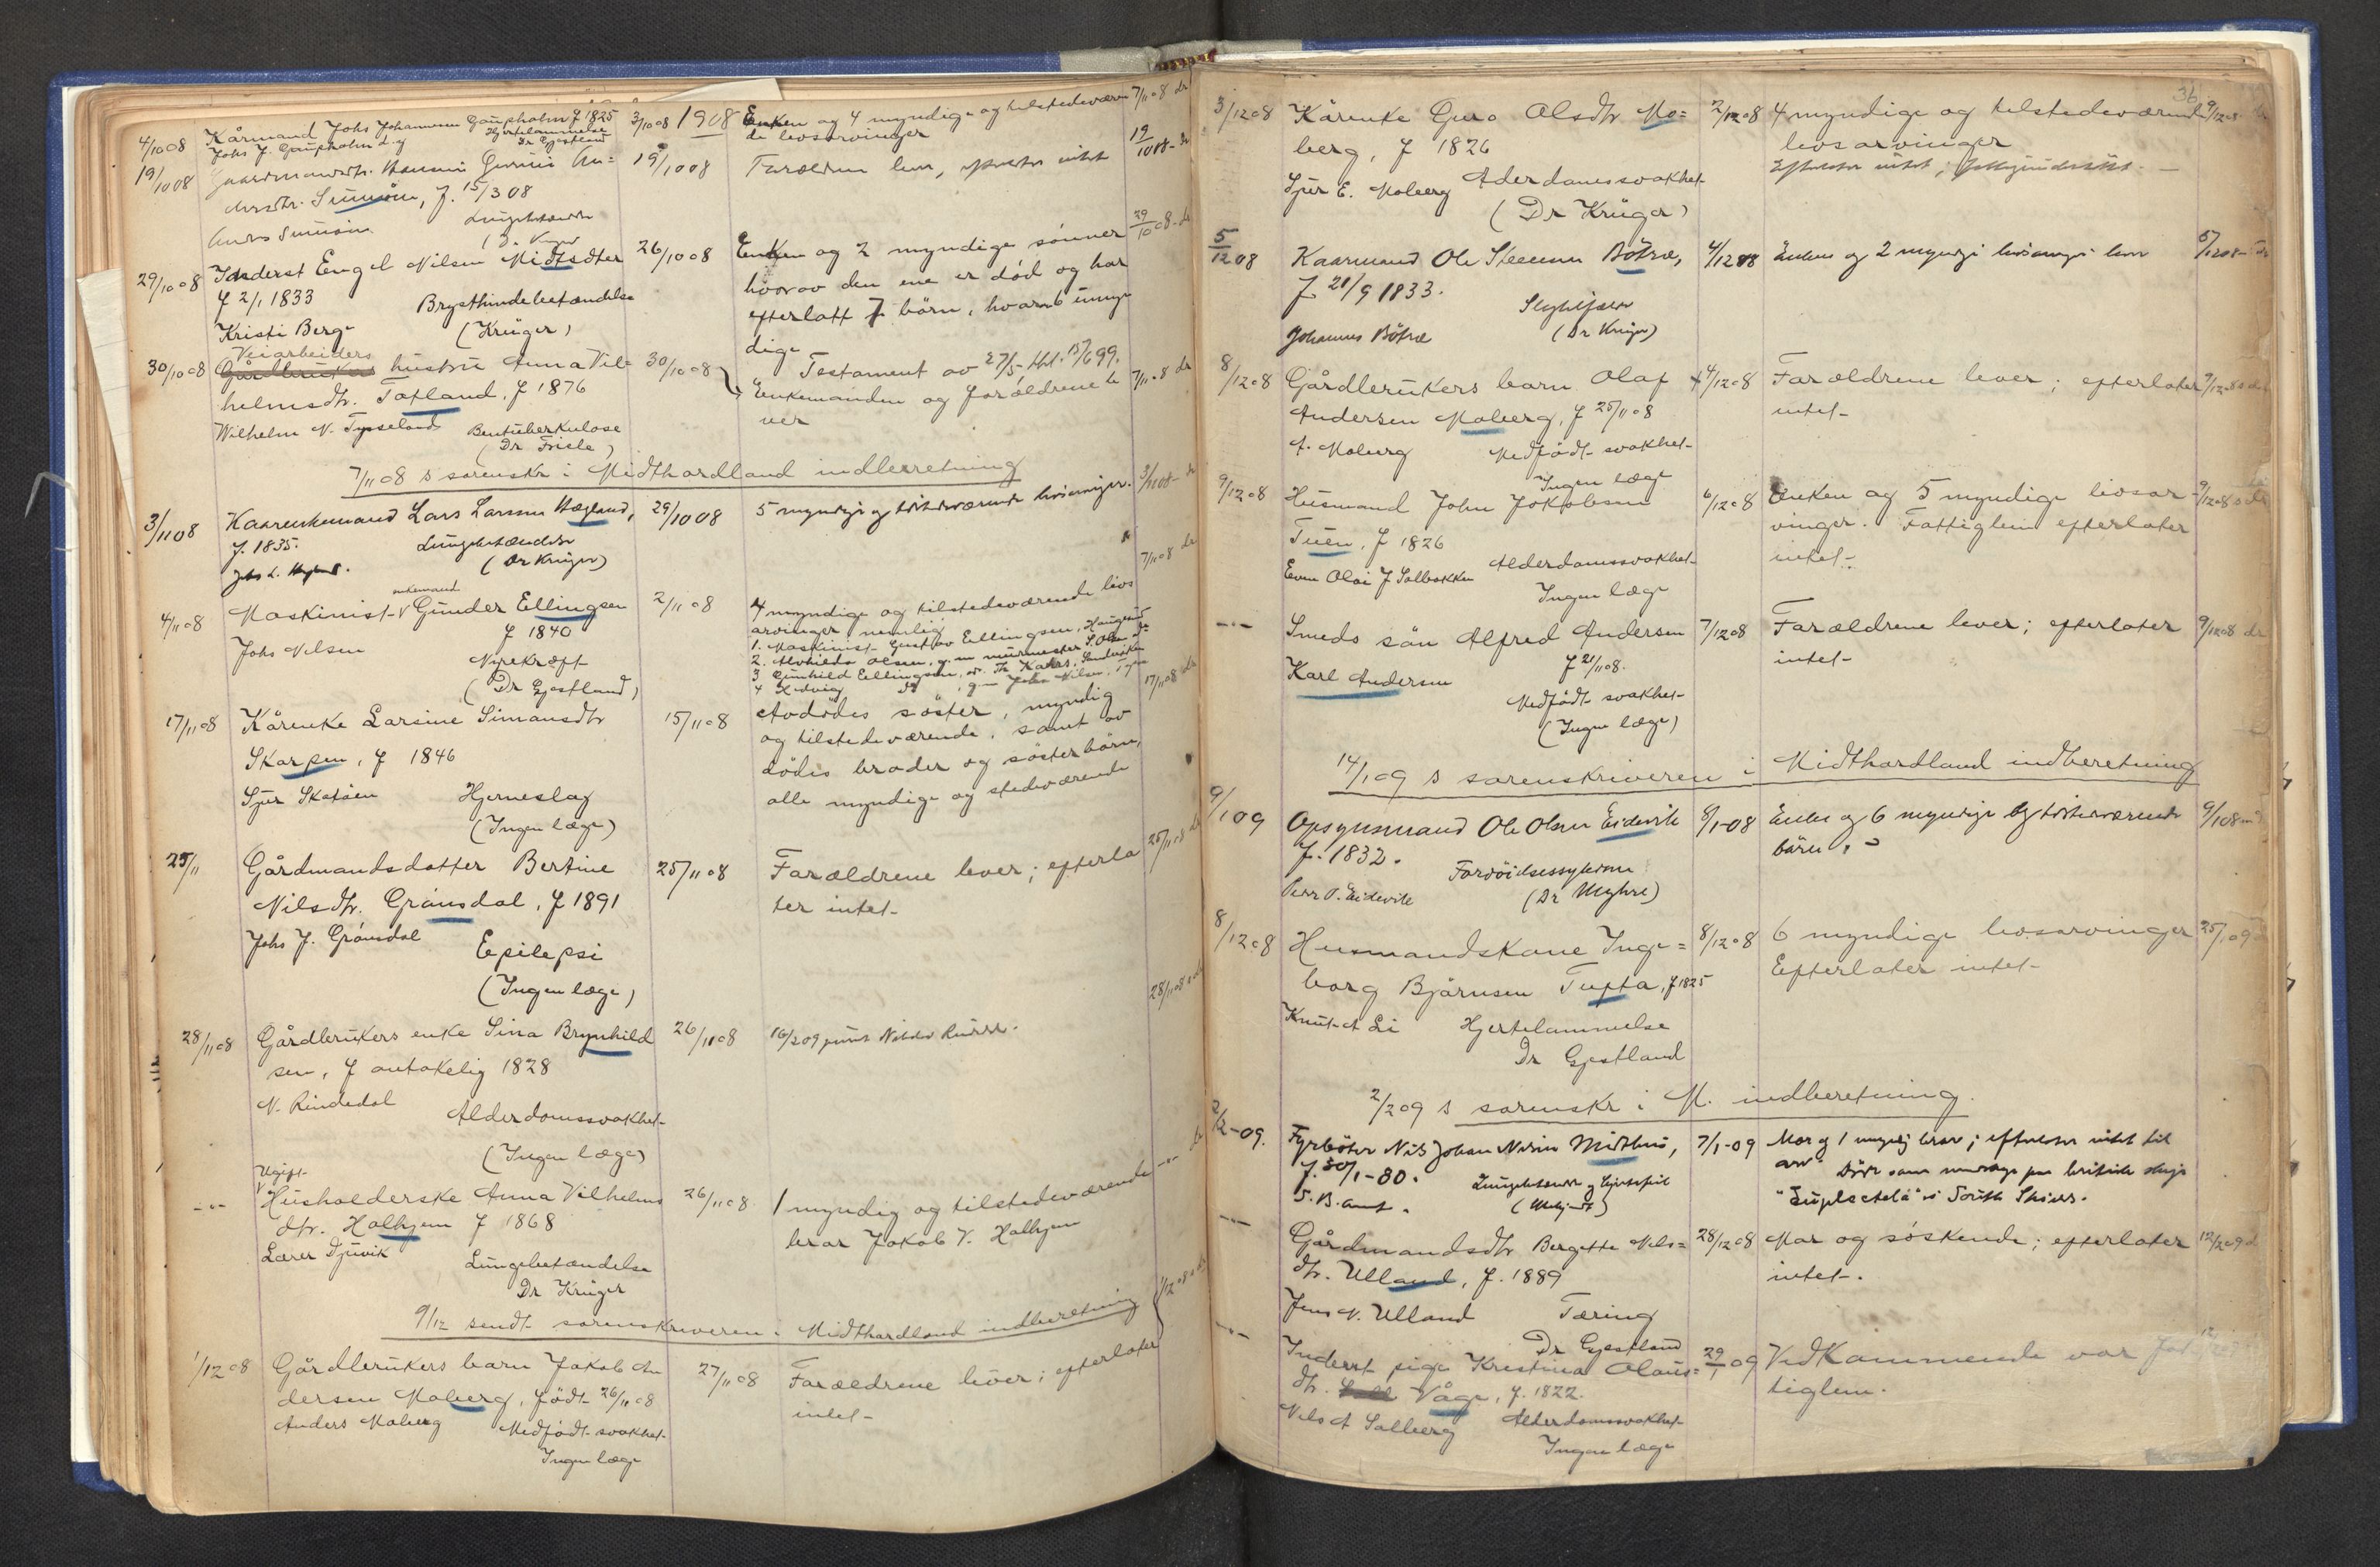 1908
4/10 08 Kårmand Johs Johannessen Gaupholm f 1825 3/10 08 Enken og 4 myndige og tilstedeværen 7/11 08 dr
Johs J. Gaupholm Hjertelammelse de livsarvinger
Dr Gjestland
19/10 08 Gaardmandsdtr. Gurine An= 19/10 08 Forældrene lever, efterlater intet 19/10 08 dr
dersdtr. f. 15/3 08
Anders Lungebetændelse
29/10 08 Inderst Engel Nilsen Midtsæter 26/10 08 Enken og 2 myndige sønner 29/10 08 dr
f 2/1 1833 Brysthindebetændelse hvorav den ene er død og har
Kristi Berge (Krüger) efterlatt 7 børn, hvorav 6 umyn
dige
Veiarbeiders
30/10 08 Gårdbrukers hustru Anna Vil= 30/10 08 Testament av 27/5, tht. 15/6 99.
helmsdtr. Tofland, f 1876 Enkemanden og forældrene le 7/11 08 dr
Wilhelm N. Tysseland Bentuberkulose ver
(Dr Friele)
7/11 08 s sorenskr i Midthordland indberetning
3/11 08 Kaarenkemand Lars Larsen Hegland, 29/10 08 5 myndige og tilstedeværende livsarvinger. 3/11 08 dr
f. 1835. Lungebetændelse
(Dr Krüger)
enkemand
4/11 08 Maskinist Gunder Ellingsen 2/11 08 4 myndige og tilstedeværende livs 7/11 08 dr
f 1840 arvinger nemlig
Johs Nilsen Nyrekræft 1. Maskinist Gustav Ellingsen, Haugesund
(Dr Gjestland) 2. Alvhilda Olsen, g. m murmester S. Olsen
3 Gunhild Ellingsen,
4 Hedvig do, g m Johs Nilsen,
17/11 08 Kårenke Larsine Simonsdtr 15/11 08 Avdødes søster, myndig 17/11 08 dr
Skorpen, f 1846 og tilstedeværende, samt av
Sjur Skotøen Hjerneslag dødes broder og søsterbørn,
(Ingen læge) alle myndige og stedeværende
25/11 Gårdmandsdatter Bertine 25/11 08 Forældrene lever; efterla 25/11 08 dr
Nilsdtr. Grønsdal, f 1891 ter intet
Johs J. Grønsdal Epilepsi
(Ingen læge)
28/11 08 Gårdbrukers enke Sina Brynhild 26/11 08 16/2 09 28/11 08 dr
sen, f antakelig 1828
N. Rindedal Alderdomssvakhet
(Ingen læge)
Ugift
-"- Husholderske Anna Vilhelms 26/11 08 1 myndig og tilstedeværende -"- dr
dtr. Holhjem f 1868 bror Jakob V. Holhjem
Lærer Djuvik Lungebetændelse
Dr Krüger
9/12 sendt sorenskriveren i Midthordland indberetning
1/12 08 Gårdbrukers barn Jakob An 27/11 08 Forældrene lever; efterlater
dersen Moberg, født 26/11 08 intet
Anders Moberg Medfødt svakhet
Ingen læge
36
3/12 08 Kårenke Guro Olsdtr Mo= 2/12 08 4 myndige og tilstedeværende 9/12 08
berg, f 1826 livsarvinger
Sjur E. Moberg Alderdomssvakhet Efterlater intet;
(Dr Krüger)
5/12 08 Kaarmand Ole Steensen Bøtræ, 4/12 08 Enken og 2 myndige livsarvinger lever 5/12 08
f 21/9 1833.
Johannes Bøtræ (Dr Krüger)
8/12 08 Gårdbrukers barn Olaf 4/12 08 Forældrene lever; efterlater 9/12 08 dr
Andersen Moberg, f 25/11 08 intet
A. Moberg Medfødt svakhet
Ingen læge
9/12 08 Husmand John Jokobsen 6/12 08 Enken og 5 myndige livsar 9/12 08 dr
Tuen, f 1826 vinger. Fattiglem efterlater
Even Olai J Solbakken Alderdomssvakhet intet
Ingen læge
-"- Smeds søn Alfred Andersen 7/12 08 Forældrene lever; efterlater 9/12 08 dr
f 21/11 08. intet
Karl Andersen Medfødt svakhet
(Ingen læge)
14/1 09 s sorenskriveren i Midthordland indberetning
9/1 09 Opsynsmand Ole Olsen Eidevik 8/1-08 Enken og 6 myndige og tilstedeværende 9/1 08
f. 1832. børn.
Peder O. Eidevik (Dr Myhre)
8/12 08 Husmandskone Inge= 8/12 08 6 myndige livsarvinger 25/1 09
borg Bjørnsen Tufta, f 1825 Efterlater intet
Knut A Li Hjertelammelse
Dr Gjestland
2/2 09 s sorenskr i M. indberetning.
2/2-09. Fyrbøter Nils Johan Nilsen Midthus, 7/1-09 Mor og 1 myndig bror; efterlater intet til
f. 30/1-80. Lungebetændelse og hjertefeil arv. Døde som mandskap paa britisk skip
i South Shields.
-"- Gårdmandsdtr Bergette Nils= 28/12 08 Mor og søskende; efterlater 12/2 09 dr
dtr. Ulland, f. 1889 intet.
Jens N. Ulland Tæring
Dr Gjestland
-"- Inderst pige Kristina Olaus= 29/1 09 Vedkommende var fat
dtr. Våge, f. 1822. tiglem.
Nils A Solberg Alderdomssvakhet
Ingen læge